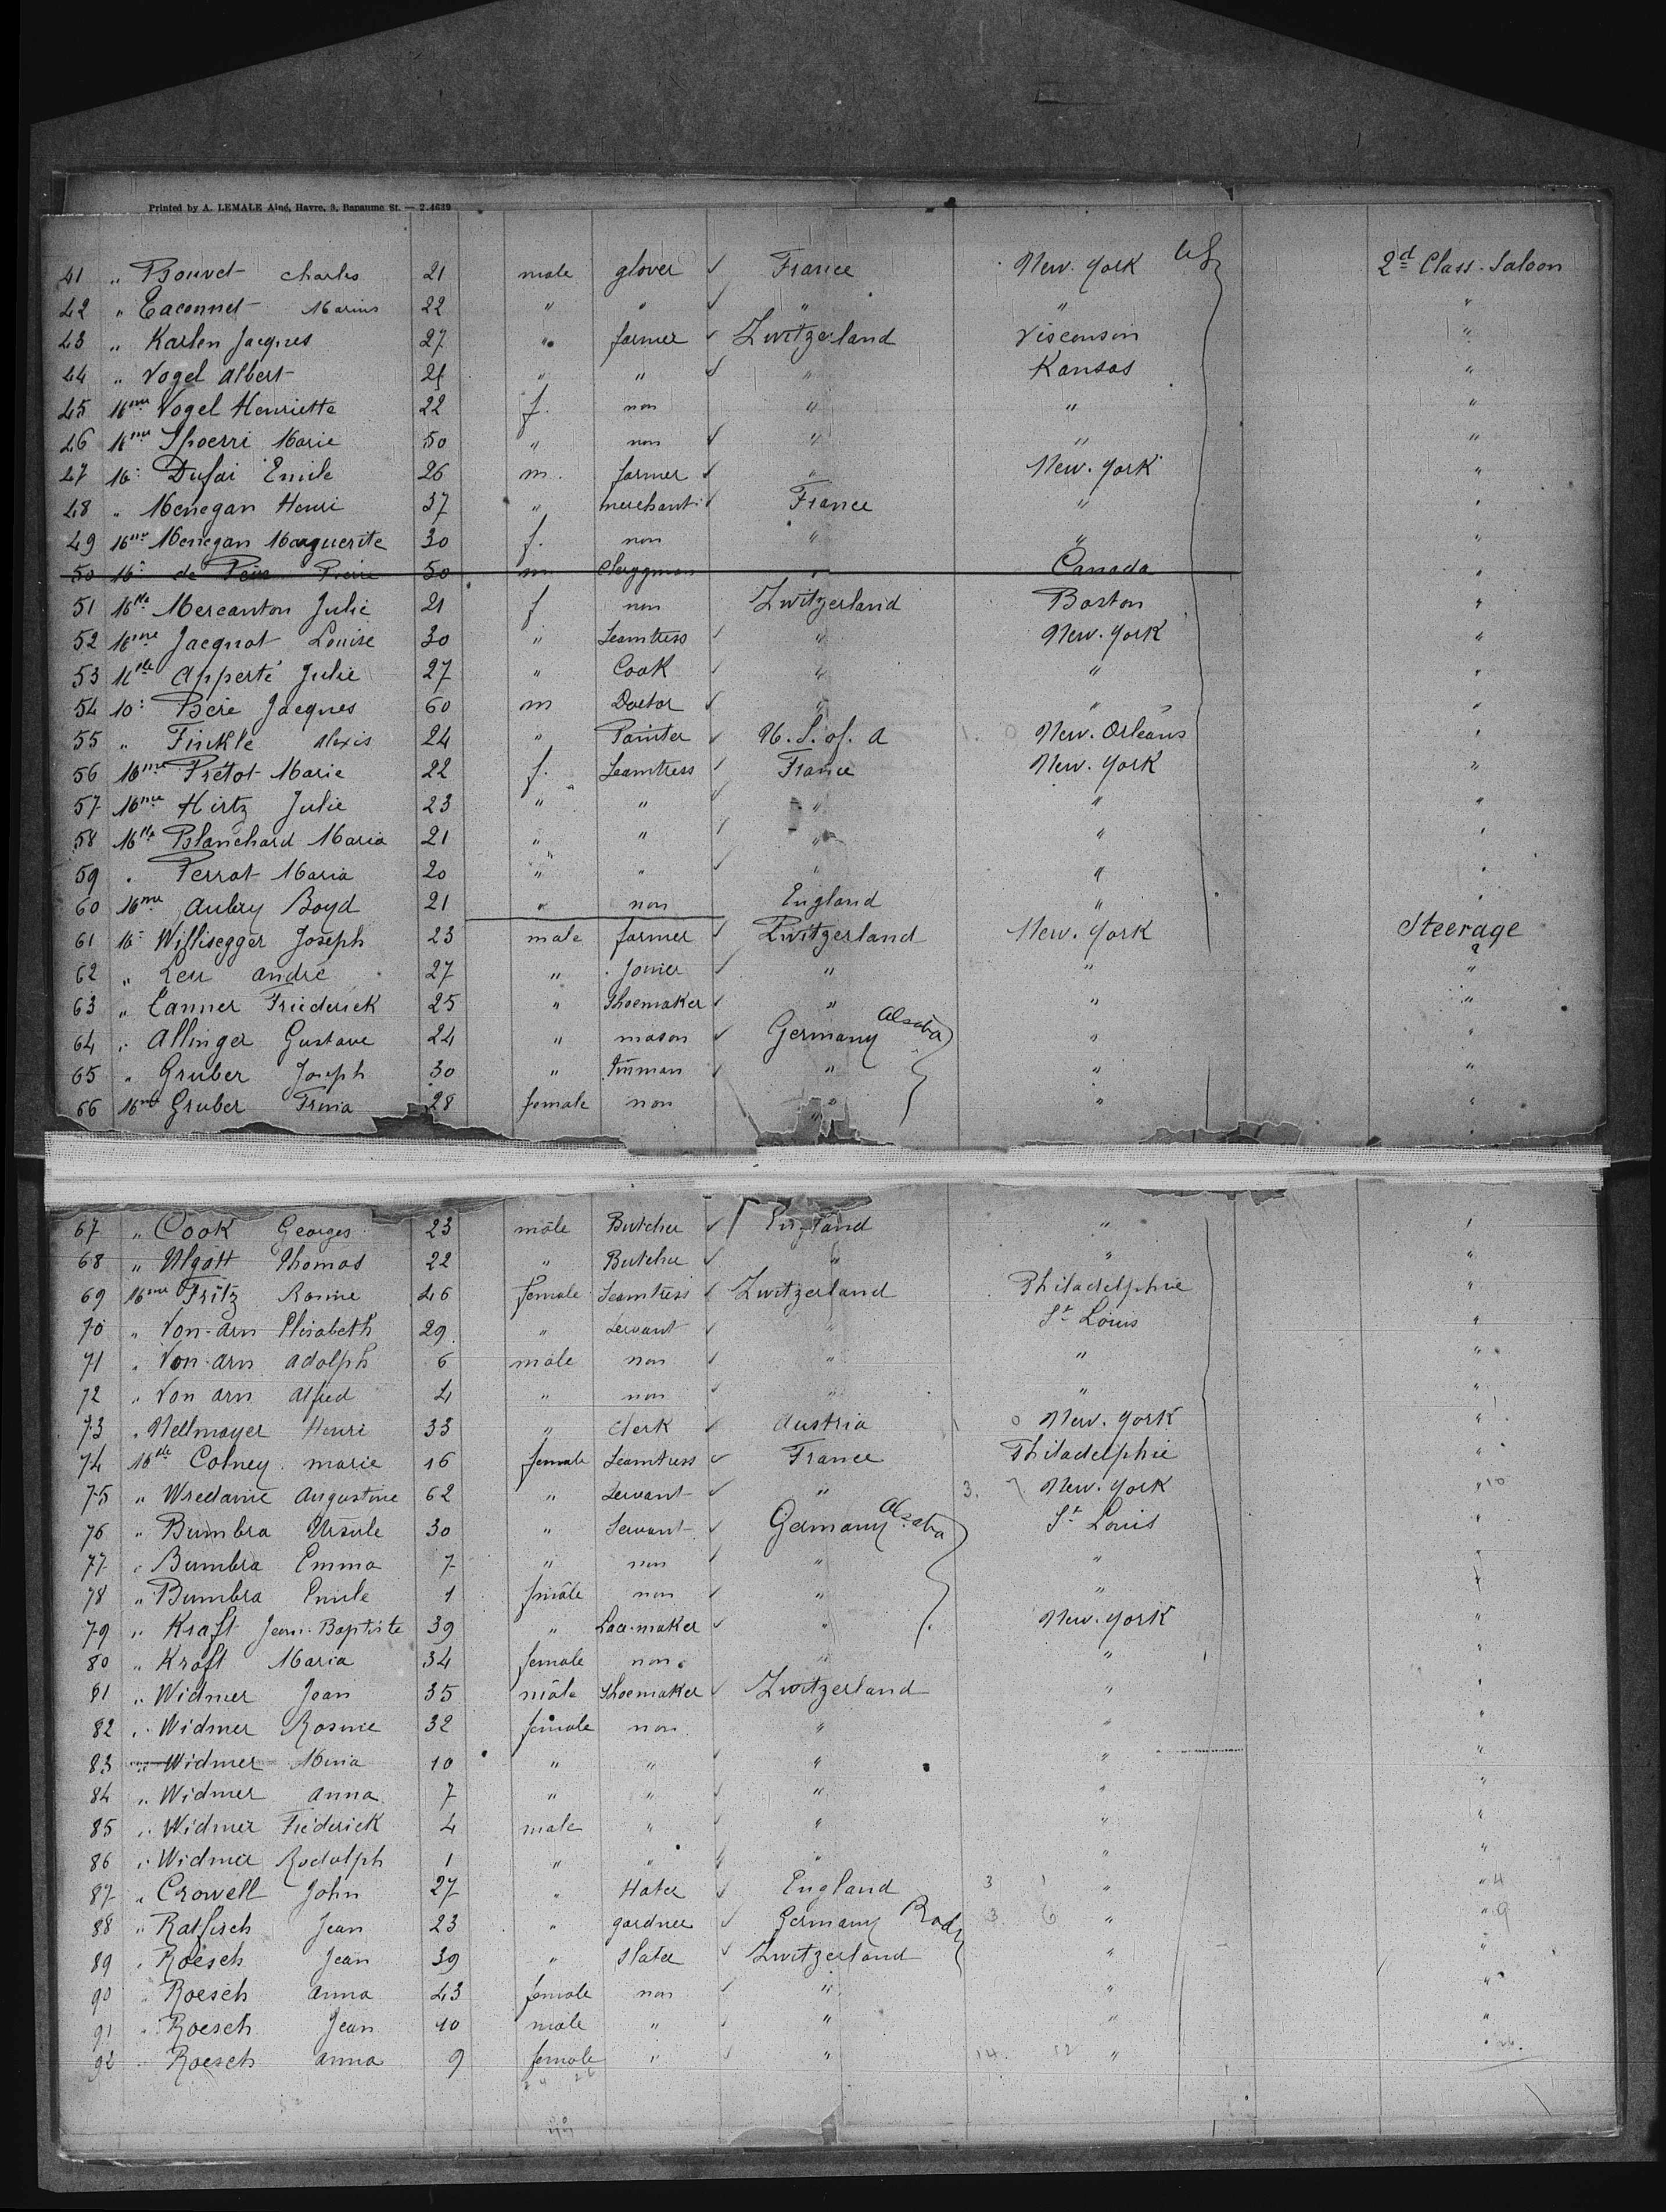 Printed by A. LEMALE Aîné, Havre, 3, Bapaume St. — 2.4639
41 " Bouvet Charles 21 male glover ✓ France New. York 2d Class. Saloon
42 " Marius 22 " " ✓ " " "
43 " Karlen Jacques 27 " farmer ✓ Zwitzerland Visconsin "
44 " Vogel Albert " " ✓ " Kansas "
45 Mme Vogel Henriette 22 f. non " " "
46 Mme Spoerri Marie 50 " non ✓ " " "
47 M: Dufai Emile 26 m. farmer ✓ " New. York "
48 " Menegan Henri 37 " merchant ✓ France " "
49 Mme Menegan Marguerite 30 f. non " " "
50 M: de 50 m Clergyman " Canada "
51 Mlle Mercanton Julie 21 f non Zwitzerland Boston "
52 Mme Jacquot Louise 30 " Seamtress ✓ " New. York "
53 Mlle Apperté Julie 27 " Cook ✓ " " "
54 M: Jacques 60 m Doctor ✓ " " "
55 " Finkle Alexis 24 " Painter ✓ U. S. of. A New. Orleans "
56 Mme Prétot Marie 22 f. Seamtress ✓ France New. York "
57 Mme Hirtz Julie 23 " " ✓ " " "
58 Mlle Blanchard Maria 21 " " ✓ " " "
59 " Perrot Maria 20 " " ✓ " " "
60 Mme Aubry Boyd 21 " non England " "
61 M: Willisegger Joseph 23 male farmer ✓ Zwitzerland New. York Steerage
62 " Leu André 27 " Joiner ✓ " " "
63 " Tanner Friederick 25 " Shoemaker ✓ " " "
64 " Allinger Gustave 24 " mason ✓ Germany Alsatia " "
65 " Gruber Joseph 30 " Tinman ✓ " " "
66 Mme Gruber 28 female non " " "
67 " Cook Georges 23 male Butcher ✓ England " "
68 " Thomas 22 " Butcher ✓ " " "
69 Mme Fritz Rosine 46 female Seamtress ✓ Zwitzerland Philadelphie "
70 " Von-Arn Elisabeth 29 " Servant ✓ " St Louis "
71 " Von-Arn Adolph 6 male non ✓ " " "
72 " Von Arn Alfred 4 " non ✓ " " "
73 " Nellmayer Henri 33 " Clerk ✓ Austria 1 0 New. York "
74 Mlle Colney marie 16 female Seamtress ✓ France Philadelphie "
75 " Augustine 62 " Servant ✓ " 3. 7 New. York " 10
76 " Bumbra Ursule 30 " Servant ✓ Germany Alsatia St Louis "
77 " Bumbra Emma 7 " non ✓ " " "
78 " Bumbra Emile 1 male non ✓ " " "
79 " Kraft Jean-Baptiste 39 " Lace-maker ✓ " New. York "
80 " Kraft Maria 34 female non " " "
81 " Widmer Jean 35 male Shoemaker ✓ Zwitzerland " "
82 " Widmer Rosine 32 female non " " "
83 " Widmer Mina 10 " " ✓ " " "
84 " Widmer Anna 7 " " ✓ " " "
85 " Widmer Frederick 4 male " ✓ " " "
86 " Widmer Rodolph 1 " " ✓ " " "
87 " Crowell John 27 " Hater ✓ England 3 1 " " 4
88 " Ratfisch Jean 23 " gardner ✓ Germany Bad 3 6 " " 9
89 " Roesch Jean 39 " Slater ✓ Zwitzerland " "
90 " Roesch Anna 43 female non ✓ " " "
91 " Roesch Jean 10 male " ✓ " " "
92 " Roesch Anna 9 female " ✓ " 14. 12 "